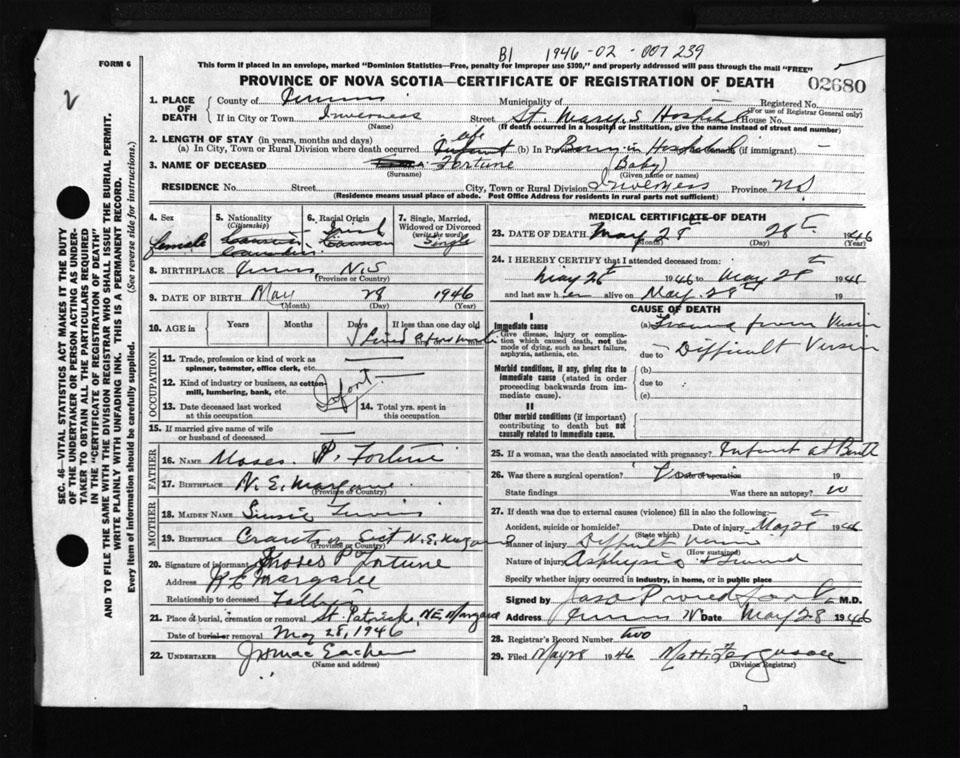 B1 1946-02-007239
FORM 6
This form if placed in an envelope, marked "Dominion Statistics—Free, penalty for improper use $300," and properly addressed will pass through the mail "FREE"
PROVINCE OF NOVA SCOTIA—CERTIFICATE OF REGISTRATION OF DEATH
02680
2
1. PLACE OF DEATH
County of
Municipality of
Registered No.
(For use of Registrar General only)
If in City or Town Inverness Street St. Mary's Hospital House No.
(Name) (If death occurred in a hospital or institution, give the name instead of street and number)
2. LENGTH OF STAY (in years, months and days)
(a) In City, Town or Rural Division where death occurred (b) In Province Born in Hospital (if immigrant) —
3. NAME OF DECEASED Fortune (Baby)
(Surname) (Given name or names)
RESIDENCE No. Street City, Town or Rural Division Inverness Province NS
(Residence means usual place of abode. Post Office Address for residents in rural parts not sufficient)
4. Sex
female
5. Nationality
(Citizenship)
Canadian
6. Racial Origin
Irish
7. Single, Married, Widowed or Divorced
(write the word)
Single
8. BIRTHPLACE N.S
(Province or Country)
9. DATE OF BIRTH May 28 1946
(Month) (Day) (Year)
10. AGE in
Years
Months
Days
If less than one day old
OCCUPATION
11. Trade, profession or kind of work as
spinner, teamster, office clerk, etc.
12. Kind of industry or business, as cotton-
mill, lumbering, bank, etc.
Infant
13. Date deceased last worked
at this occupation
14. Total yrs. spent in
this occupation
15. If married give name of wife
or husband of deceased
FATHER
16. Name Moses P. Fortune
17. Birthplace N. E. Margaree
(Province or Country)
MOTHER
18. Maiden Name Susie
19. Birthplace N.E.
(Province or Country)
20. Signature of informant Moses P Fortune
Address N E Margaree
Relationship to deceased Father
21. Place of burial, cremation or removal St. Patrick, NE Margaree
Date of burial or removal May 28, 1946
22. UNDERTAKER
(Name and address)
MEDICAL CERTIFICATE OF DEATH
23. DATE OF DEATH May 28th 28th 1946
(Month) (Day) (Year)
24. I HEREBY CERTIFY that I attended deceased from:
May 28 1946 to May 28th 1946
and last saw her alive on May 28th 19
CAUSE OF DEATH
I
Immediate cause
Give disease, injury or complication which caused death, not the mode of dying, such as heart failure, asphyxia, asthenia, etc.
(a) from Version
due to Difficult Version
Morbid conditions, if any, giving rise to immediate cause (stated in order proceeding backwards from immediate cause).
(b)
due to
(c)
II
Other morbid conditions (if important) contributing to death but not causally related to immediate cause.
25. If a woman, was the death associated with pregnancy? Infant at Birth
26. Was there a surgical operation? Date of operation 19
State findings Was there an autopsy? no
27. If death was due to external causes (violence) fill in also the following:
Accident, suicide or homicide? Date of injury May 28th 1946
(State which)
Manner of injury Difficult Version
(How sustained)
Nature of injury Asphyxia
Specify whether injury occurred in industry, in home, or in public place
Signed by M.D.
Address Date May 28 1946
28. Registrar's Record Number two
29. Filed May 28 1946 Matt. Ferguson
(Division Registrar)
SEC. 46—VITAL STATISTICS ACT MAKES IT THE DUTY
OF THE UNDERTAKER OR PERSON ACTING AS UNDER-
TAKER TO OBTAIN ALL THE PARTICULARS REQUIRED
IN THE "CERTIFICATE OF REGISTRATION OF DEATH"
AND TO FILE THE SAME WITH THE DIVISION REGISTRAR WHO SHALL ISSUE THE BURIAL PERMIT.
WRITE PLAINLY WITH UNFADING INK. THIS IS A PERMANENT RECORD.
Every item of information should be carefully supplied. (See reverse side for instructions.)